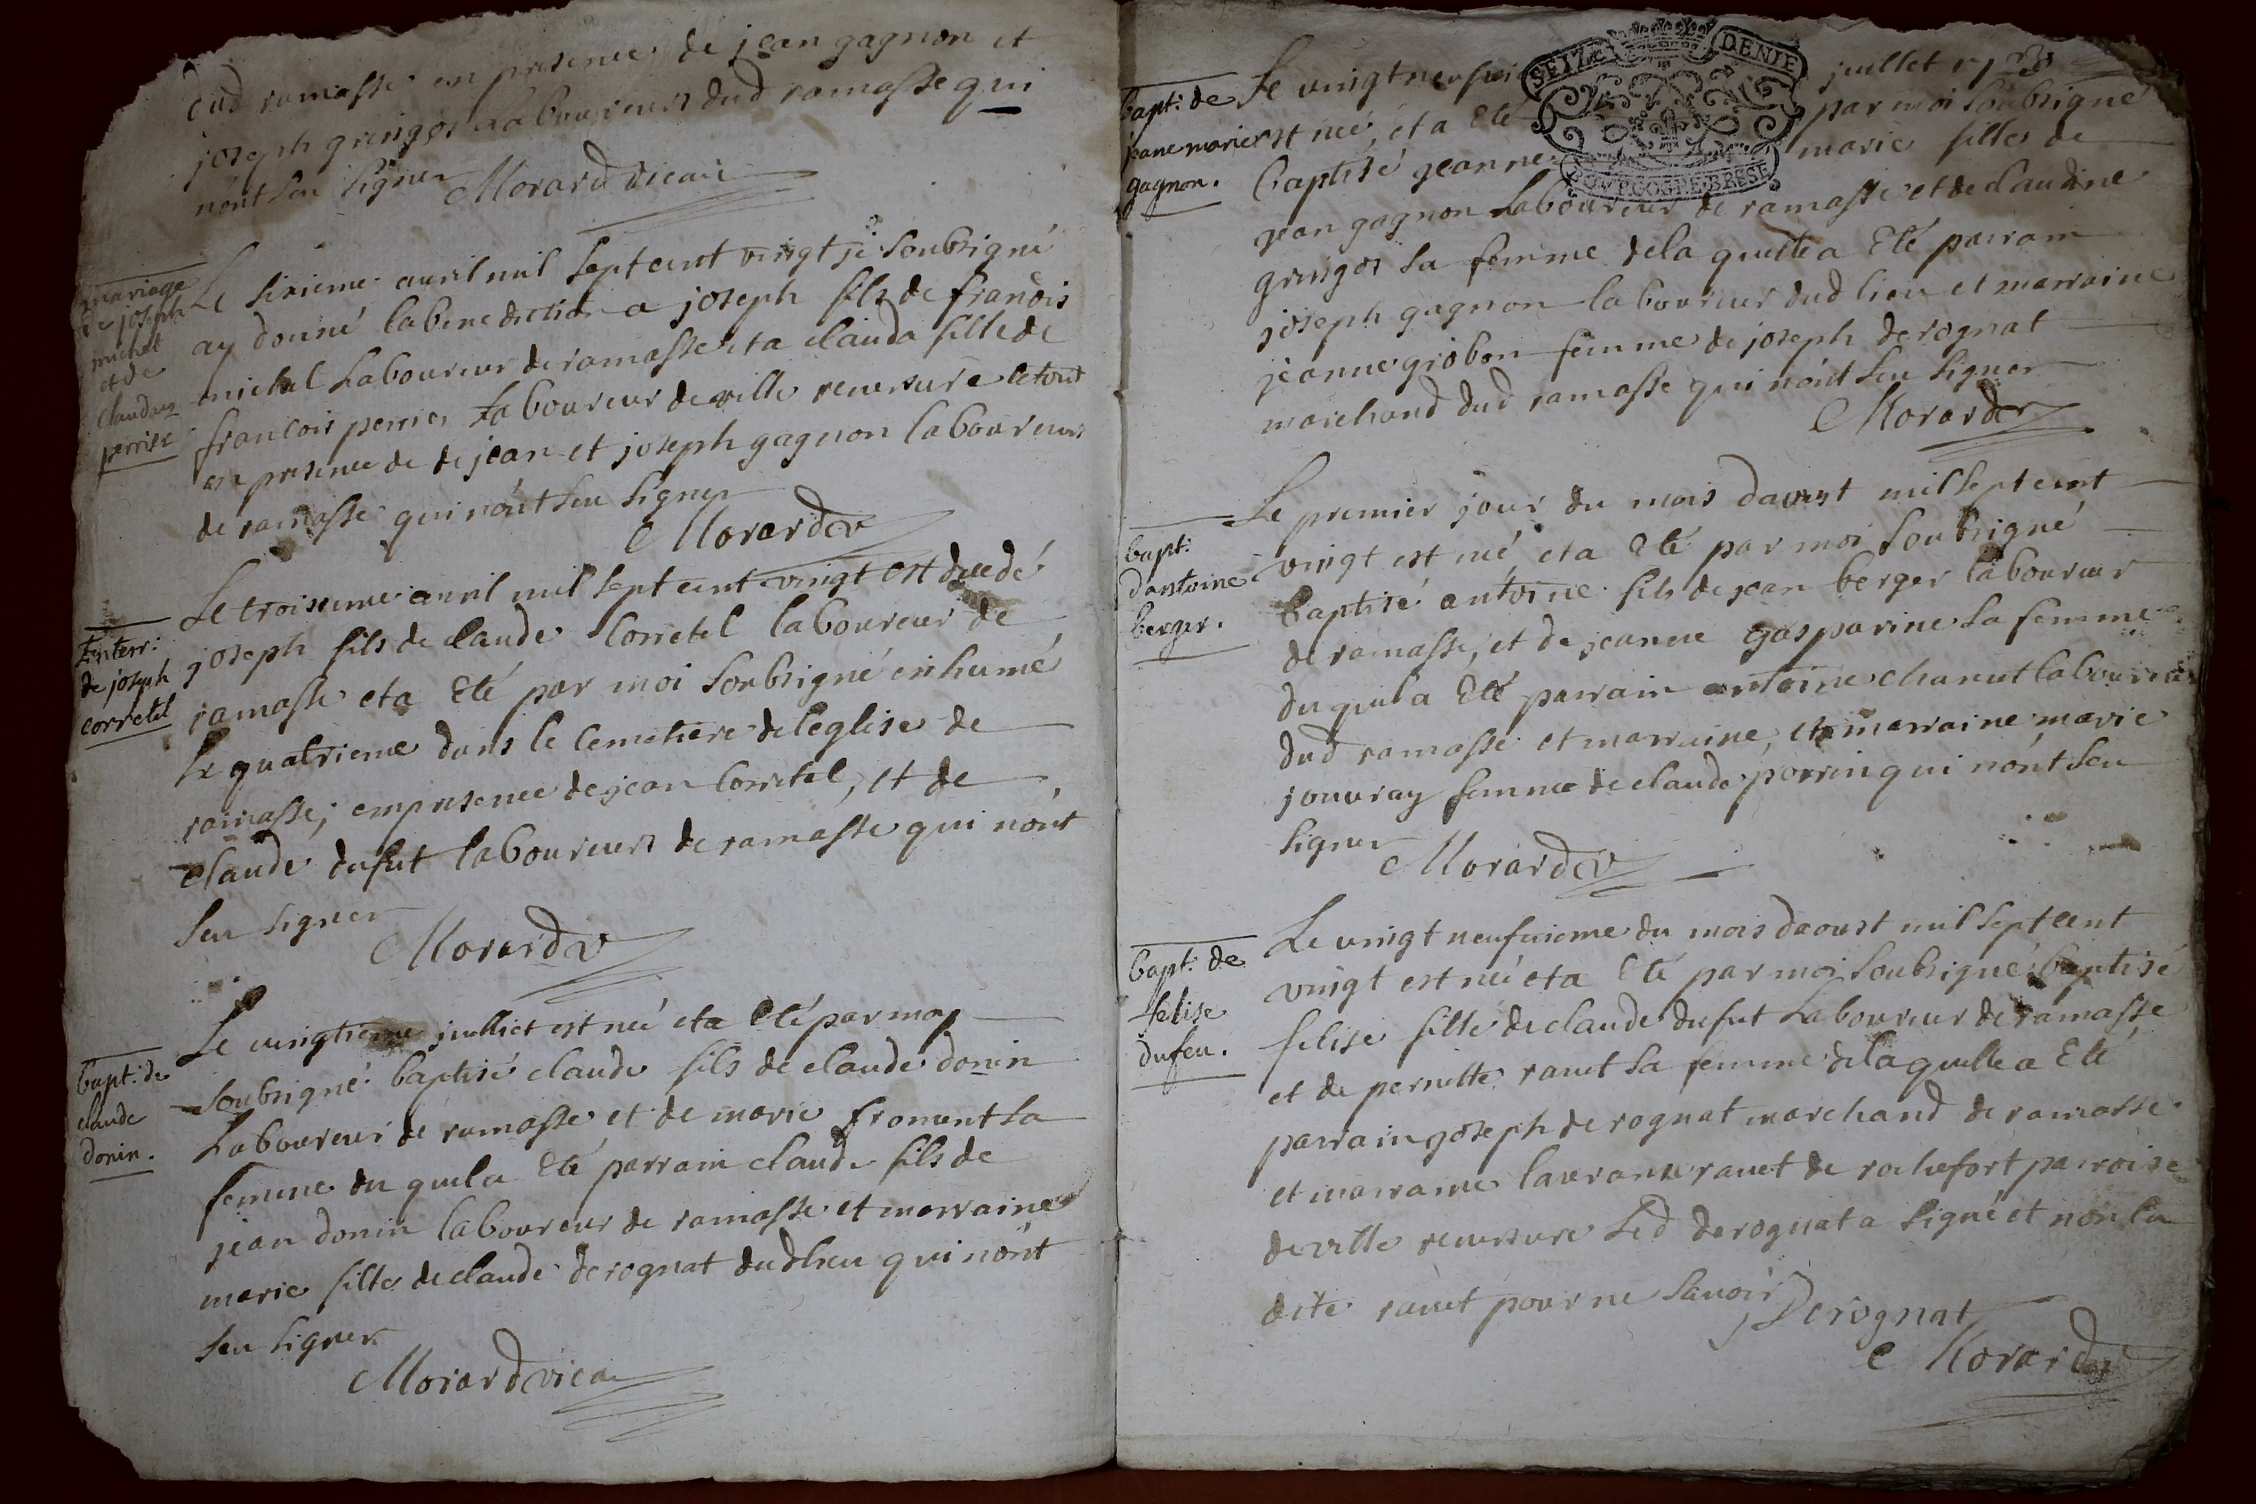 dud ramasse en presence de jean gagnon et
joseph gringoz laboureurs dud ramasse qui
n'ont seu signer
Morard vicaire
mariage
de joseph
michel
et de
claudaz
perrier
Le sixieme avril mil sept cent vingt je soubsigné
ay donné la benediction a joseph fils de francois
michel Laboureur de ramasse et a clauda fille de
francois perrier Laboureur de ville reversure le tout
en presence de de jean et joseph gagnon laboureurs
de ramasse qui n'ont seu signer
Morard v
Enterr:
de joseph
corretel
Le troisieme avril mil sept cent vingt est decedé
joseph fils de claude Corretel laboureur de
ramasse et a Eté par moi soubsigné enhumé
le quatrieme dans le Cemetiere de l'eglise de
ramasse; en presence de jean Corretel, et de
claude dufut laboureurs de ramasse qui n'ont
seu signer
Morard v
bapt: de
claude
donin.
Le vingtieme julliet est né et a Eté par moy
soubsigné baptisé claude fils de claude donin
Laboureur de ramasse et de marie froment sa
femme du quel a Eté parrain claude fils de
jean donin laboureur de ramasse et marraine
marie fille de claude derognat dud lieu qui n'ont
seu signer
Morard vicai
SEIZE DENIE
BOURGOGNE BRESSE
bapt: de
jeane marie
gagnon.
Le vingt neufvi juillet
est née, et a Eté par moi soubsigné
baptisé jeanne marie fille de
jean gagnon Laboureur de ramasse et de claudine
gringoz sa femme de la quelle a Eté parrain
joseph gagnon laboureur dud lieu et marraine
jeanne giobon femme de joseph derognat
marchand dud ramasse qui n'ont seu signer
Morard v
bapt:
dantoine
berger.
Le premier jour du mois daoust mil sept cent
vingt est né et a Eté par moi soubsigné
baptisé antoine fils de jean berger laboureur
de ramasse, et de jeanne gasparine sa femme
du quel a Eté parrain antoine chanut laboureur
dud ramasse et marraine, et marraine marie
jouvray femme de claude perrin qui n'ont seu
signer
Morard v
bapt: de
felise
dufeu.
Le vingt neufvieme du mois daoust mil sept cent
vingt est née et a Eté par moi soubsigné baptisé
felise fille de claude dufut Laboureur de ramasse
et de pernette ravet sa femme de la quelle a Eté
parrain joseph derognat marchand de ramasse
et marraine lauranse ravet de rochefort parroise
de ville reversure Led derognat a signé et non la
dite ravet pour ne savoir
Derognat
Morard v